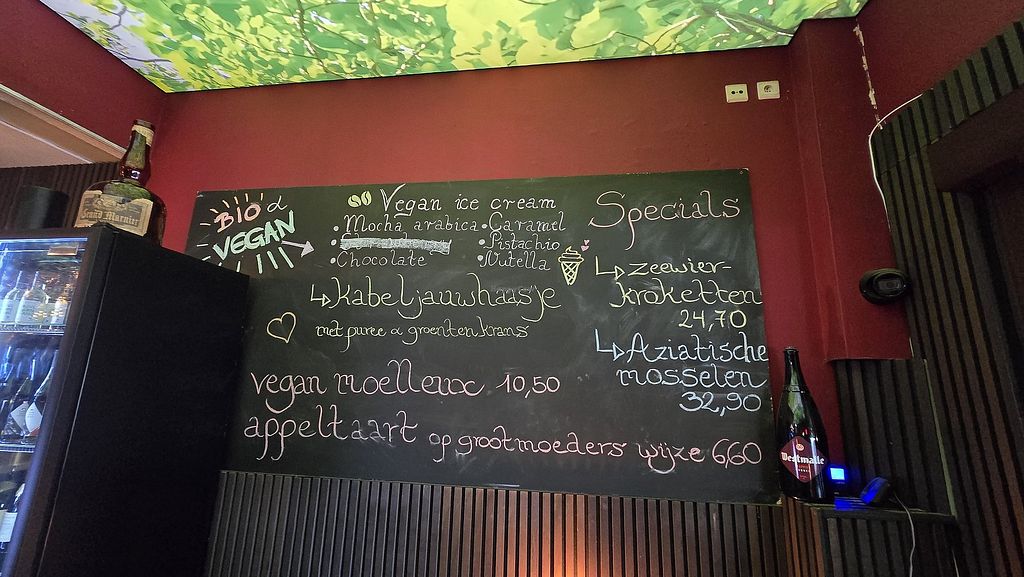 Grand Marnier
BIO &
VEGAN
Vegan ice cream
• Mocha arabica
•
• Chocolate
• Caramel
• Pistachio
• Nutella
↳ Kabeljauwhaasje
met puree & groentenkrans
vegan moelleux 10,50
appeltaart op grootmoeders wijze 6,60
Specials
↳ zeewier-
kroketten
24,70
↳ Aziatische
mosselen
32,90
Westmalle